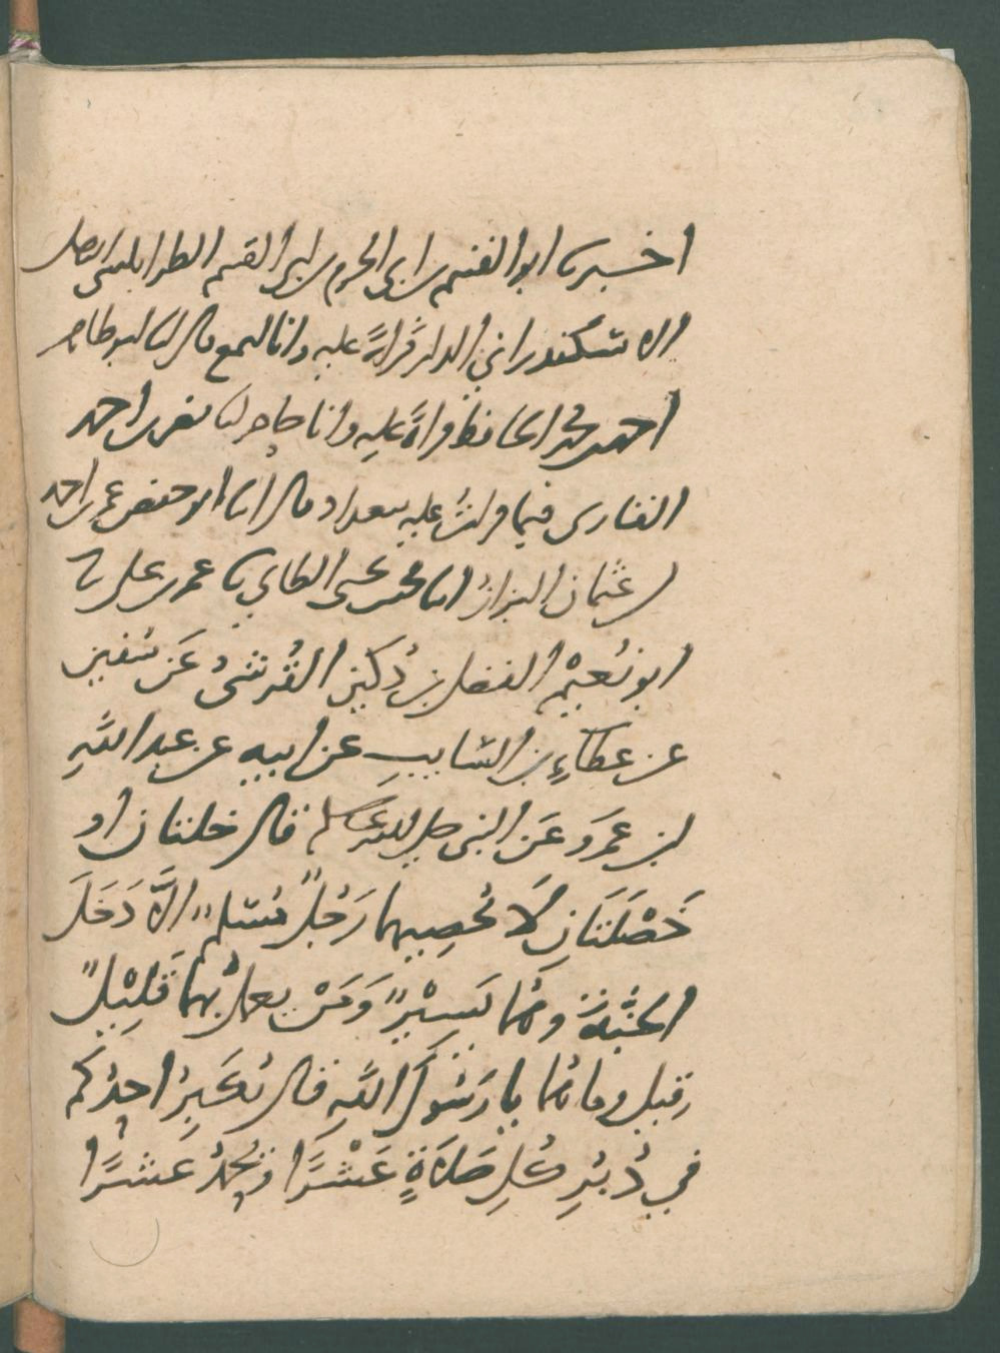 اخبرنا ابو القسم بن ابي الحرم بن ابي القسم الطرابلسي الاصل
الاسكندراني الدار قراءة عليه وانا اسمع قال انا ابو طاهر
احمد بن محمد الحافظ قراءة عليه وانا حاضر انا نصر بن احمد
القارى فيما قرات عليه ببغداد قال انا ابو حفص عمر بن احمد
بن عثمان البزاز انا محمد بن يحيى الطاي نا عمر بن علي نا
ابو نُعَيْم الفضل بن دُكَين القُرشي عَن سُفين
عن عطاءِ بن السّايب عن ابيه عن عبد اللهِ
بن عمرو عَن النبي صلى الله عليه وسلم قال خلتان او
خَصْلَتَانِ لَا يُحصيهما رَجُلٌ مُسْلم الاَّ دَخَلَ
الجنّة وهُما يَسِيْرٌ وَمَنْ يعملُ بهما قَلِيْلٌ
قيل وما هُما يا رَسُوَلَ اللهِ قال يُكَبِرُ احدُكم
في دُبُرِ كُلِ صَلاَةٍ عَشْرًا ويحمدُ عَشرًا